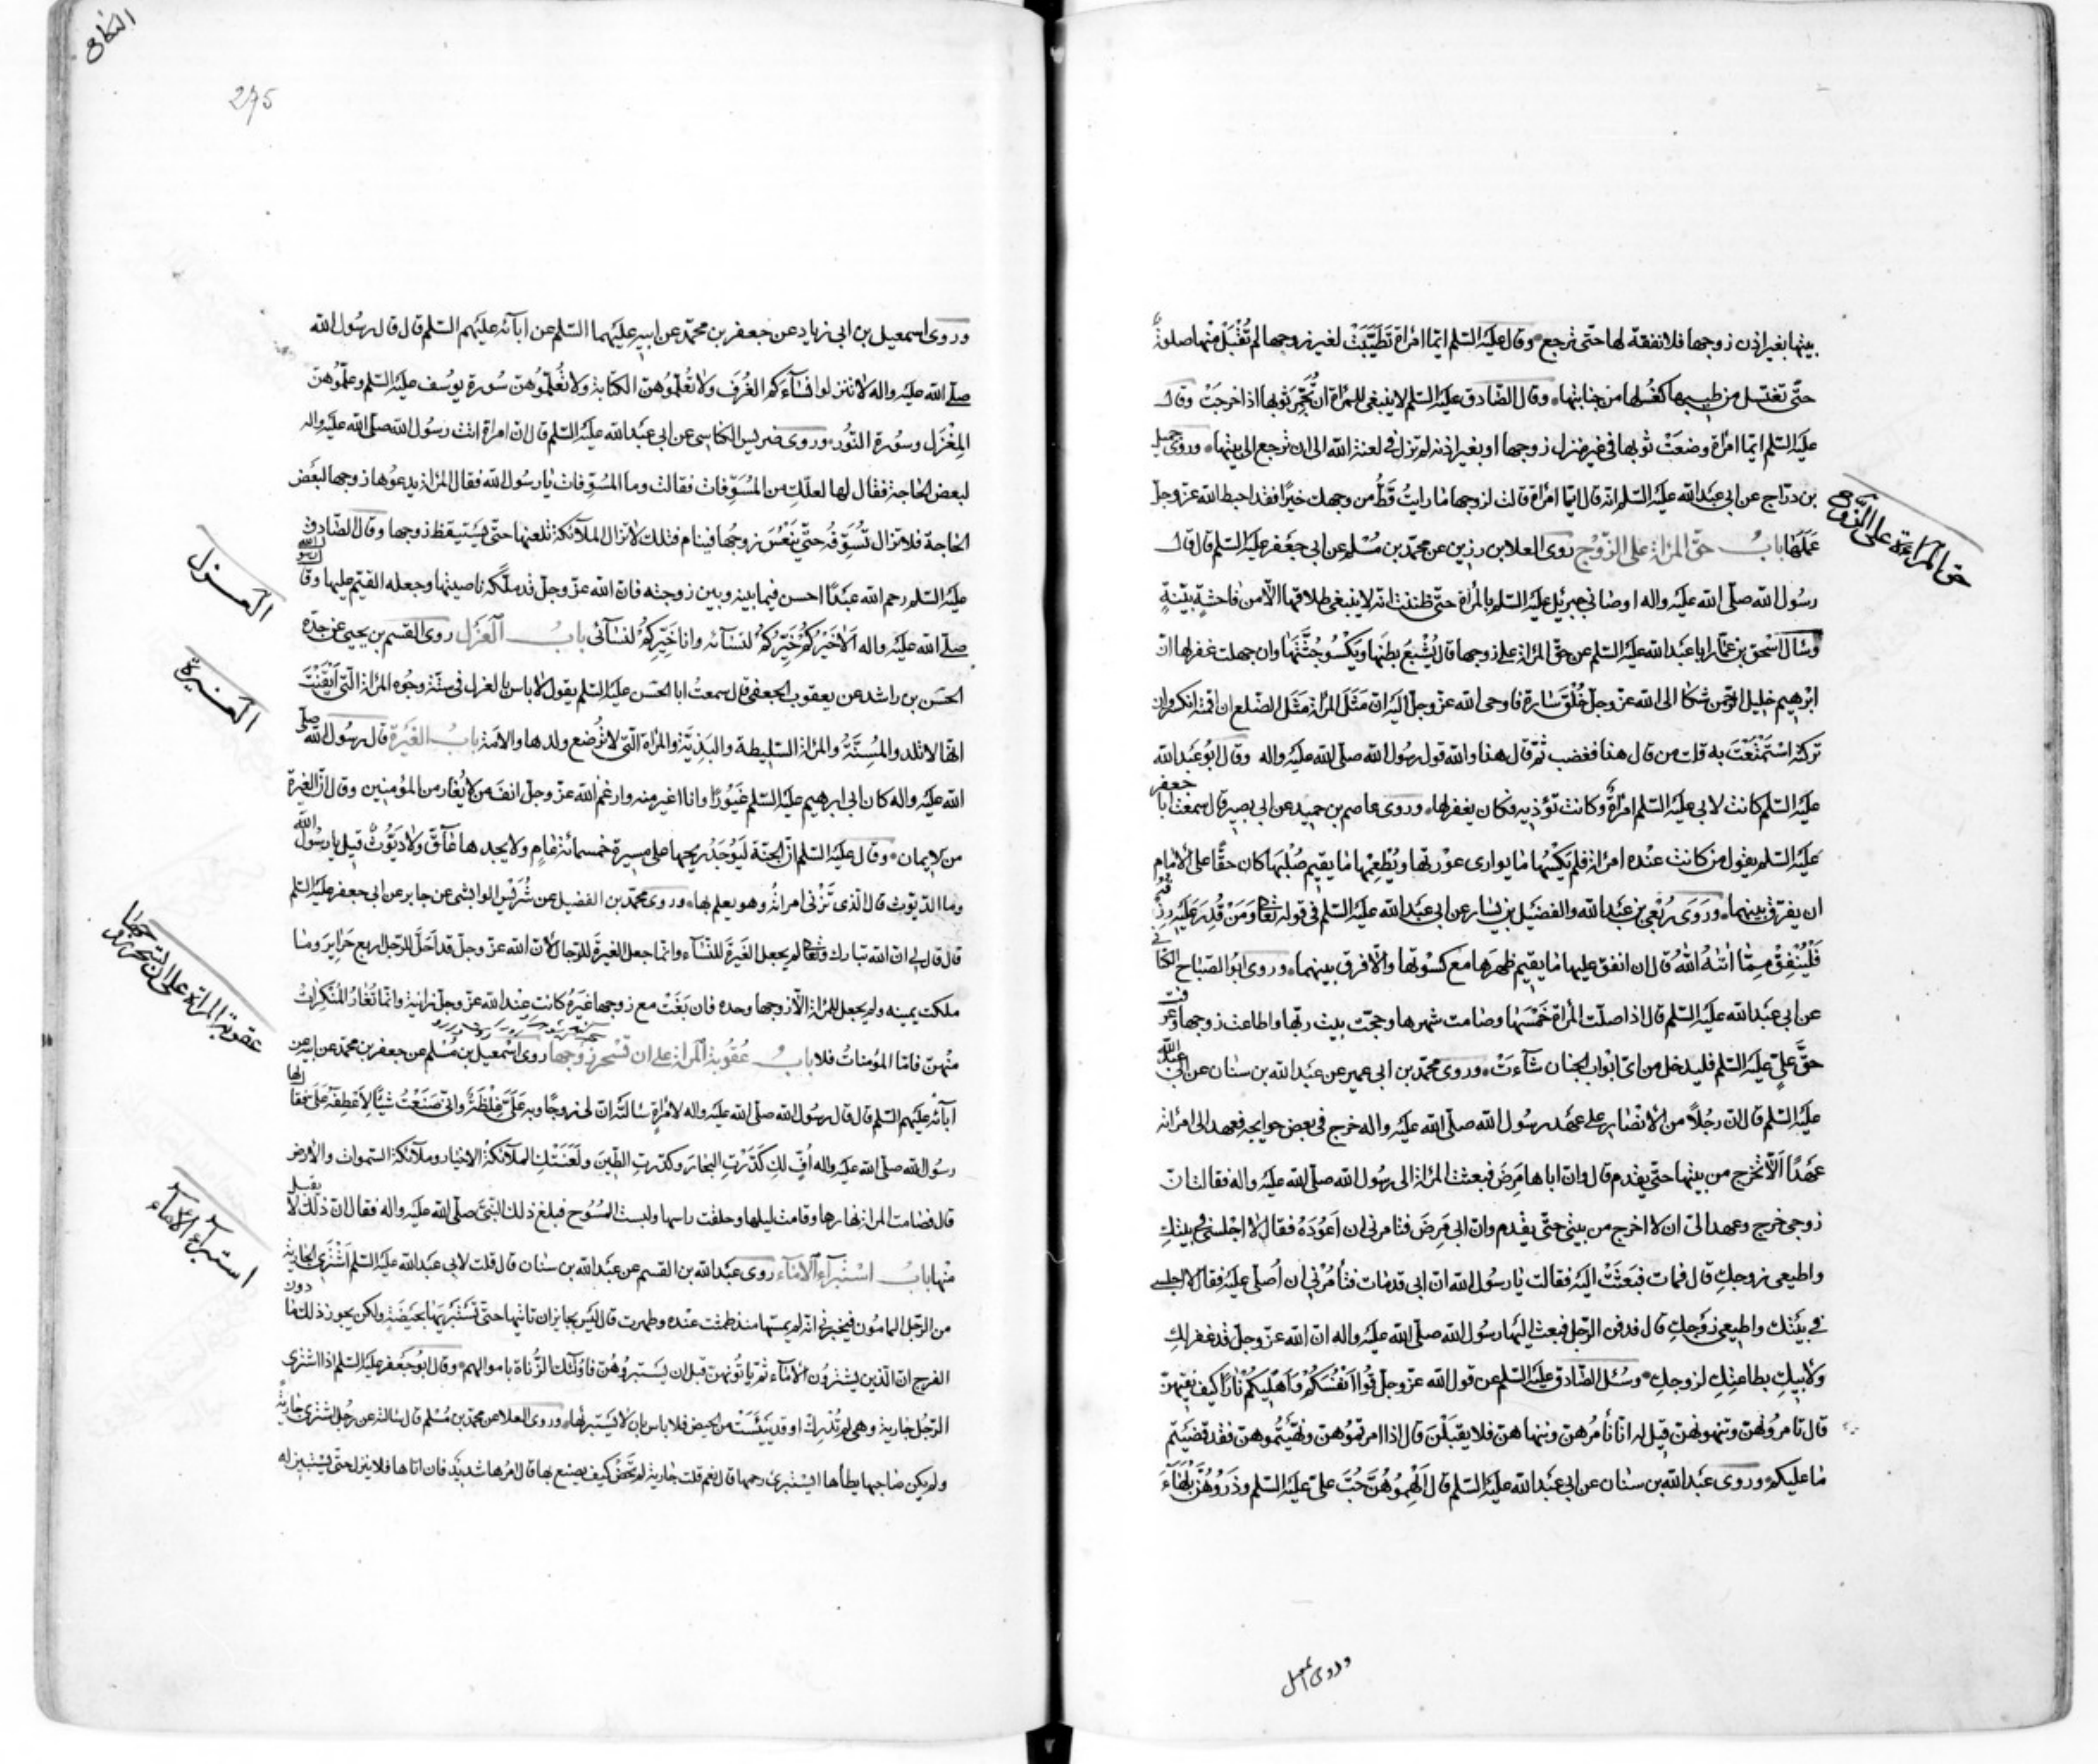 بيتها بغير اذن زوجها فلا نفقة لها حتّى ترجع وقال عليه السّلم ايّما امرأة تطيّبَتْ لغير زوجها لم تُقْبَلْ منها صلوةٌ
حتّى تغتسل من طيبها كغُسلها من جنابتها وقال الصّادق عليه السّلم لا ينبغى للمرأة ان تُجمّر ثوبها اذا خرجَتْ وقال
عليه السّلم ايّما امرأة وضعَتْ ثوبها فى غير منزل زوجها او بغير اذنه لم تزل فى لعنة الله الى ان ترجع الى بيتها وروى جميل
بن درّاج عن ابى عبد الله عليه السّلم انّه قال ايّما امرأة قالت لزوجها ما رايتُ قَطُّ من وجهك خيرًا فقد احبط الله عزّ وجلّ
حق المرأة على الزوج
عَمَلَها بابُ حقّ المرأة على الزّوج روى العلا بن رزين عن محمّد بن مُسْلم عن ابى جعفر عليه السّلم قال قال
رسول الله صلّى الله عليه واله اوصانى جبرئيل عليه السّلم بالمرأة حتّى ظننت انّه لا ينبغى طلاقها الّا من فاحشةٍ بيّنةٍ
وسأل اسْحق بن عمّار ابا عبد الله عليه السّلم عن حقّ المرأة على زوجها قال يُشْبِعُ بطنَها ويَكْسُو جُثّتَها وان جهلت غفر لها انّ
ابرٰهيم خليل الرّحمن شكا الى الله عزّ وجلّ خُلُقَ سارة فاوحى الله عزّ وجلّ اليه انّ مَثَلَ المرأة مَثَل الضّلع ان اقمته انكسر وان
تركتَه اسْتَمْتَعْتَ به قلت من قال هذا فغضب ثمّ قال هذا والله قول رسُول الله صلّى الله عليه واله وقال ابُو عبد الله
عليه السّلم كانت لابى عليه السّلم امرأةٌ وكانت تؤذيه فكان يغفر لها وروى عاصم بن حميد عن ابى بصير قال سمعت ابا جعفر
عليه السّلم يقول من كانت عنده امرأة فلم يَكْسُها ما يوارى عورتها ويُطْعِمْها ما يقيم صُلْبَها كان حقًّا على الامام
ان يفرّق بينهما وروَى رِبْعى بن عبد الله والفضيْل بن يسار عن ابى عبد الله عليه السّلم فى قوله تعالى وَمَنْ قُدِرَ عَلَيْهِ رِزْقُهُ
فَلْيُنْفِقْ مِمّا اتٰهُ اللهُ قال ان انفق عليها ما يقيم ظهرَها مع كسوتها والّا فرق بينهما وروى ابُو الصّباح الكنانى
عن ابى عبد الله عليه السّلم قال اذا صلّت المرأة خَمْسَها وصامت شهرها وحجّت بيت ربّها واطاعت زوجها وعرفت
حقَّ علىٍّ عليه السّلم فليدخل من اىّ ابواب الجنان شآءَتْ وروى محمّد بن ابى عمير عن عبد الله بن سنان عن ابى عبد الله
عليه السّلم قال انّ رجُلًا من الانصار على عهد رسُول الله صلّى الله عليه واله خرج فى بعض حوايجه فعهد الى امرأته
عهدًا الّا تخرج من بيتها حتّى يقدم قال وانّ اباها مَرِضَ فبعثت المرأة الى رسُول الله صلّى الله عليه واله فقالت انّ
زوجى خرج وعهد الىّ ان لا اخرج من بيتى حتّى يقدم وان ابى مَرِضَ فتامرنى ان اَعُودَهُ فقال لا اجْلسى فى بيتكِ
واطيعى زوجكِ قال فمات فبَعثَتْ اليه فقالت يا رسُول الله انّ ابى قد مات فتأمُرُنى ان اُصلّى عليه فقال لا اجلسى
فى بيْتك واطيعى زَوجكِ قال فدفن الرّجل فبعث اليها رسُول الله صلّى الله عليه واله انّ الله عزّ وجلّ قد غفر لكِ
ولابيكِ بطاعتِكِ لزوجكِ وسُئل الصّادق عليه السّلم عن قول الله عزّ وجلّ قُوا اَنْفُسَكُمْ وَاَهْليكُمْ نارًا كيف نقيهنّ
قال تامرُونهنّ وتنهونهنّ قيل له انّا نأمُرهنّ وننهاهنّ فلا يقبَلْنَ قال اذا امرتمُوهنّ ونهَيْتُموهنّ فقد قضَيْتم
ما عليكم وروى عبد الله بن سنان عن ابى عبد الله عليه السّلم قال اَلْهِمُوهُنَّ حُبَّ علىّ عليه السّلم وذَرُوهُنَّ بُلَهَآءَ
وروى اسمعيل
النكاح
275
وروى اسمعيل بن ابى زياد عن جعفر بن محمّد عن ابيه عليهما السّلم عن ابآئه عليهم السّلم قال قال رسُول الله
صلّى الله عليه واله لا تنزلوا نسآءَكم الغُرَفَ ولا تُعلّمُوهنّ الكتابة ولا تُعلّمُوهنّ سُورة يوسُف عليه السّلم وعلّمُوهنّ
المِغْزَل وسُورة النّور وروى ضريس الكناسى عن ابى عبد الله عليه السّلم قال انّ امرأة اتت رسُول الله صلّى الله عليه واله
لبعض الحاجة فقال لها لعلّكِ من المُسَوِّفات فقالت وما المُسوّفات يا رسُول الله فقال المرأة يدعوُها زوجها لبَعْض
الحاجة فلا تزال تُسَوِّفُه حتّى يَنْعُسَ زوجُها فينام فتلك لا تزال الملآئكة تلعنها حتّى يَسْتيقظ زوجها وقال الصّادق
عليه السّلم رحم الله عبْدًا احسن فيما بينه وبين زوجته فانّ الله عزّ وجلّ قد ملّكه ناصيتها وجعله القيّم عليها وقال رسول الله
العزل
صلّى الله عليه واله الا خَيْرُكُمْ خَيْرُكُمْ لنسآئه وانا خَيْرُكم لنسآئى بابُ العَزْل روى القسم بن يحيى عن جدّه
الحسَن بن راشد عن يعقوب الجعفى قال سمعتُ ابا الحسَن عليه السّلم يقول لا باس بالعزل فى ستّة وجُوه المرأة الّتى ايْقَنْتَ
الغيرة
انّها لا تلد والمُسِنّةُ والمرأة السّليطة والبَذِيّة والمرأة الّتى لا تُرضع ولدها والامَة بابُ الغَيْرَة قال رسُول الله صلّى
الله عليه واله كان ابى ابرهيم عليه السّلم غيُورًا وانا اغير منه وارغم الله عزّ وجلّ انفَ من لا يُغار من المؤمنين وقال انّ الغيرة
من الايمان وقال عليه السّلم انّ الجنّة ليُوجَدُ ريحها على مسيرة خمسمائة عامٍ ولا يجدها عآقّ ولا دَيُّوثٌ قيل يا رسُول الله
وما الدّيّوث قال الّذى تَزْنى امرأتُه وهو يعلم بها وروى محمّد بن الفضيل عن شُرَيْس الوابشى عن جابر عن ابى جعفر عليه السّلم
قال قال لى انّ الله تبارك وتعالى لم يجعل الغَيرةَ للنّسآء وانّما جعل الغيرةَ للرّجال لانّ الله عزّ وجلّ قد اَحَلّ للرّجل اربع حَرايرَ وما
ملكت يمينه ولم يجعل للمرأة الّا زوجها وحده فان بَغَتْ مع زوجها غَيرَهُ كانت عند الله عزّ وجلّ زانية وانّما تُغارُ المُنْكِراتُ
عقوبة المرأة على ان تسحر زوجها
منْهنّ فامّا المُؤمناتُ فلا بابُ عُقُوبة المرأة على ان تَسْحَر زوجها روى اسْمعيل بن مُسْلم عن جعفر بن محمّد عن ابيه عن
آبآئه عليهم السّلم قال قال رسُول الله صلّى الله عليه واله لامرأةٍ سألَتْه انّ لى زوجًا وبه علىّ غِلْظَةٌ وانّى صَنَعْتُ شيْئًا لاَعْطِفَه علىّ فقال لها
رسُول الله صلّى الله عليه واله اُفٍّ لكِ كَدَّرْتِ البحارَ وكدّرتِ الطّينَ ولَعَنَتْكِ الملآئكةُ الاخيار وملآئكة السّموات والارض
قال فصامت المرأة نهارها وقامت ليلها وحلقت راسها ولبست المُسُوح فبلغ ذلك النّبىّ صلّى الله عليه واله فقال انّ ذلك لا يقبل
استبرآء الامآء
منها بابُ اسْتبْرآء الامآء روى عبد الله بن القسم عن عبد الله بن سنان قال قلت لابى عبد الله عليه السّلم اَشْتَرى الجارية
من الرّجل المامُون فيخبرنى انّه لم يمسّها منذ طمثت عنده وطهرت قال ليْس بجايز ان تاتيها حتّى تَسْتبريَها بحَيْضَةٍ ولكن يجوز ذلك ما دون
الفرج انّ الّذين يشترُون الامآء ثمّ ياتُونهنّ قبل ان يَسْتبرؤُهُنّ فاولئك الزُّناة باموالهم وقال ابُو جعفر عليه السّلم اذا اشترى
الرّجُل جارية وهى لم تُدْرِك او قد يَئِسَتْ من الحيض فلا باس بان لا يَسْتبرئها وروى العلا عن محمّد بن مُسْلم قال سالته عن رجُل اشترى جاريةً
ولم يكن صاحبها يطأها ايَسْتبرئ رحمها قال نعم قلت جارية لم تَحِضْ كيف يصنع بها قال امرُها شديد فان اتاها فلا ينزل حتّى يَسْتبين له